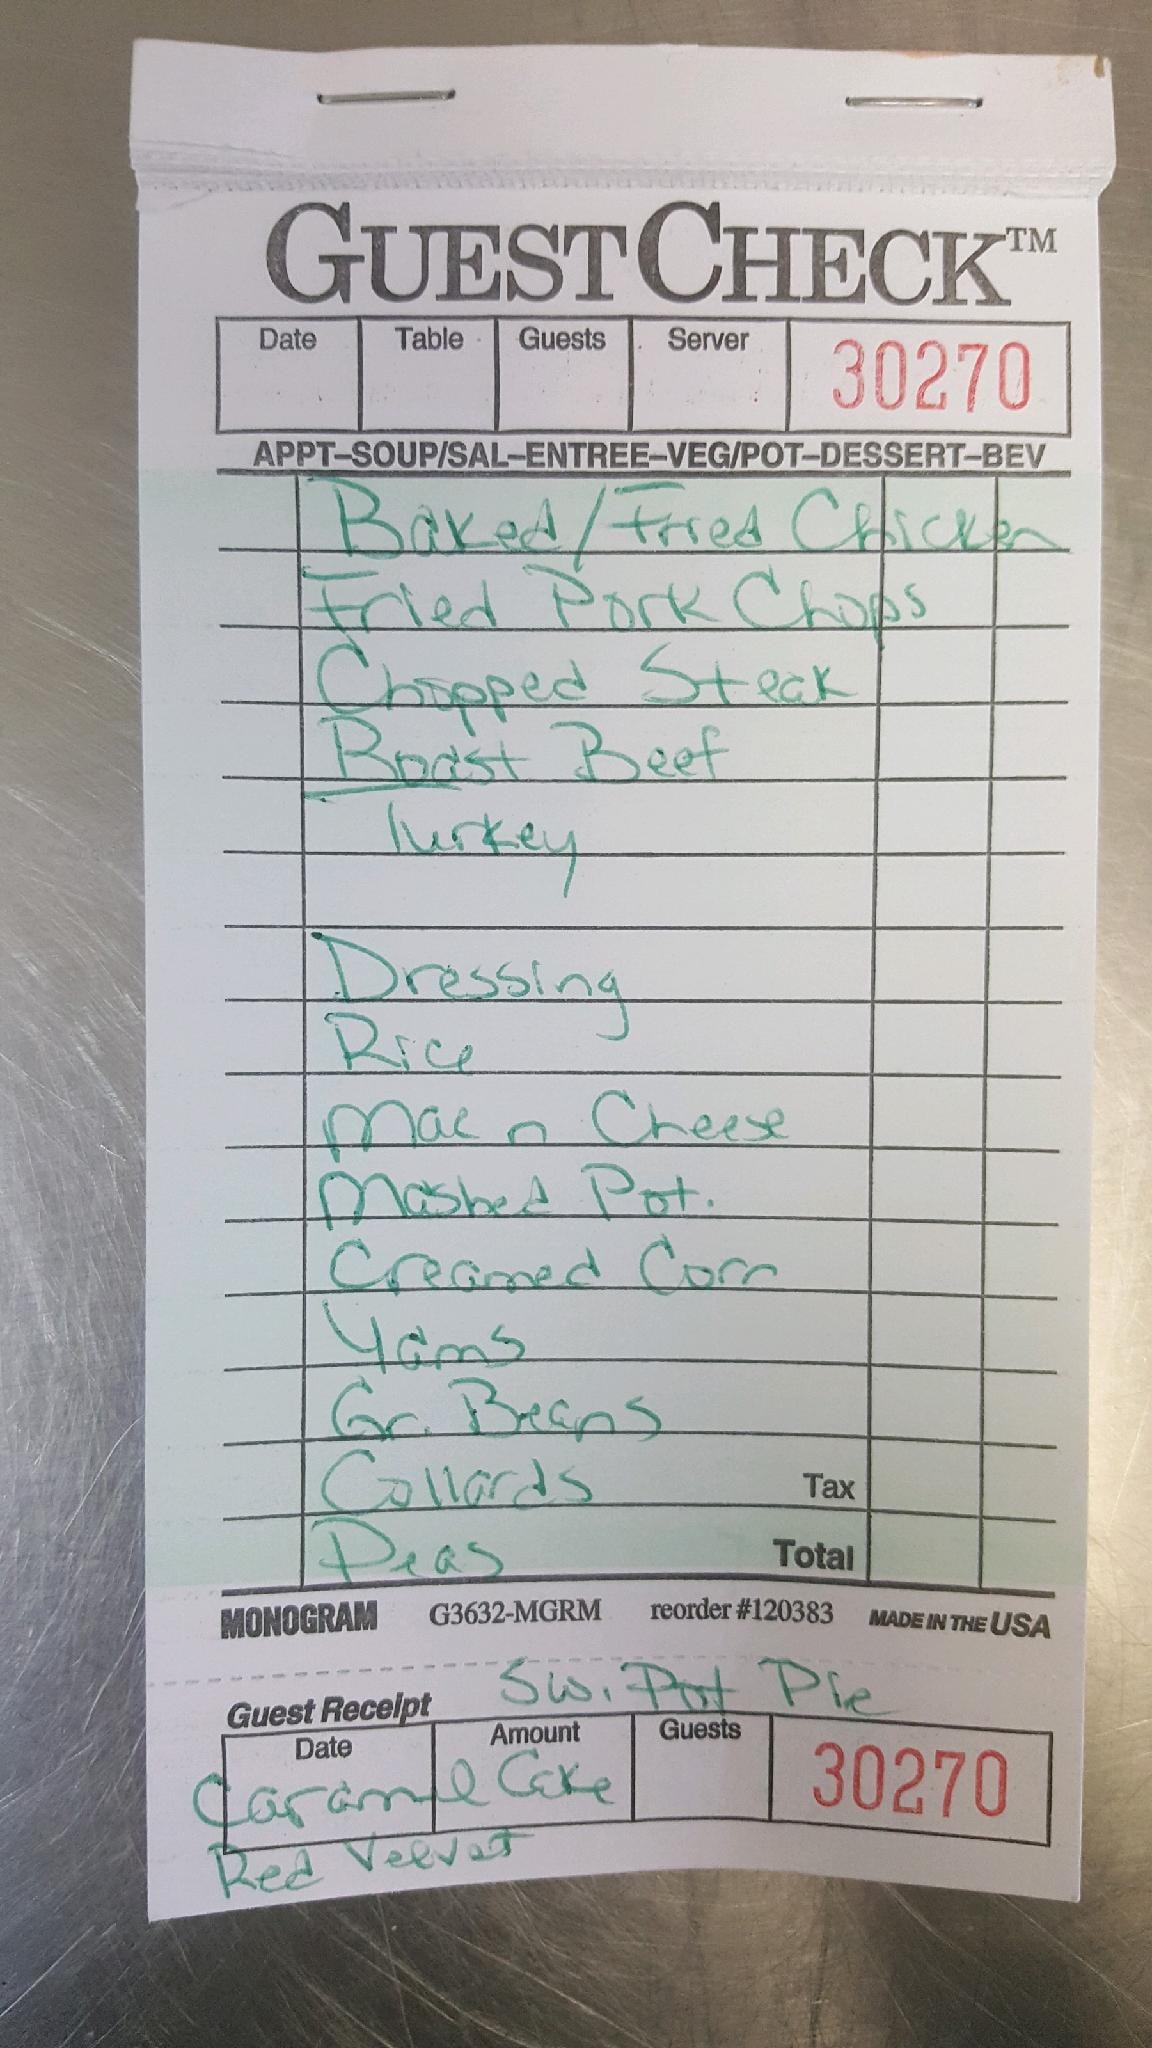 GUESTCHECK™
Date Table Guests Server 30270
APPT–SOUP/SAL–ENTREE–VEG/POT–DESSERT–BEV
Baked/Fried Chicken
Fried Pork Chops
Chopped Steak
Roast Beef
Turkey
Dressing
Rice
Mac n Cheese
Mashed Pot.
Creamed Corn
Yams
Gr. Beans
Collards Tax
Peas Total
MONOGRAM G3632-MGRM reorder #120383 MADE IN THE USA
Sw. Pot Pie
Guest Receipt
Date Amount Guests 30270
Caramel Cake
Red Velvet